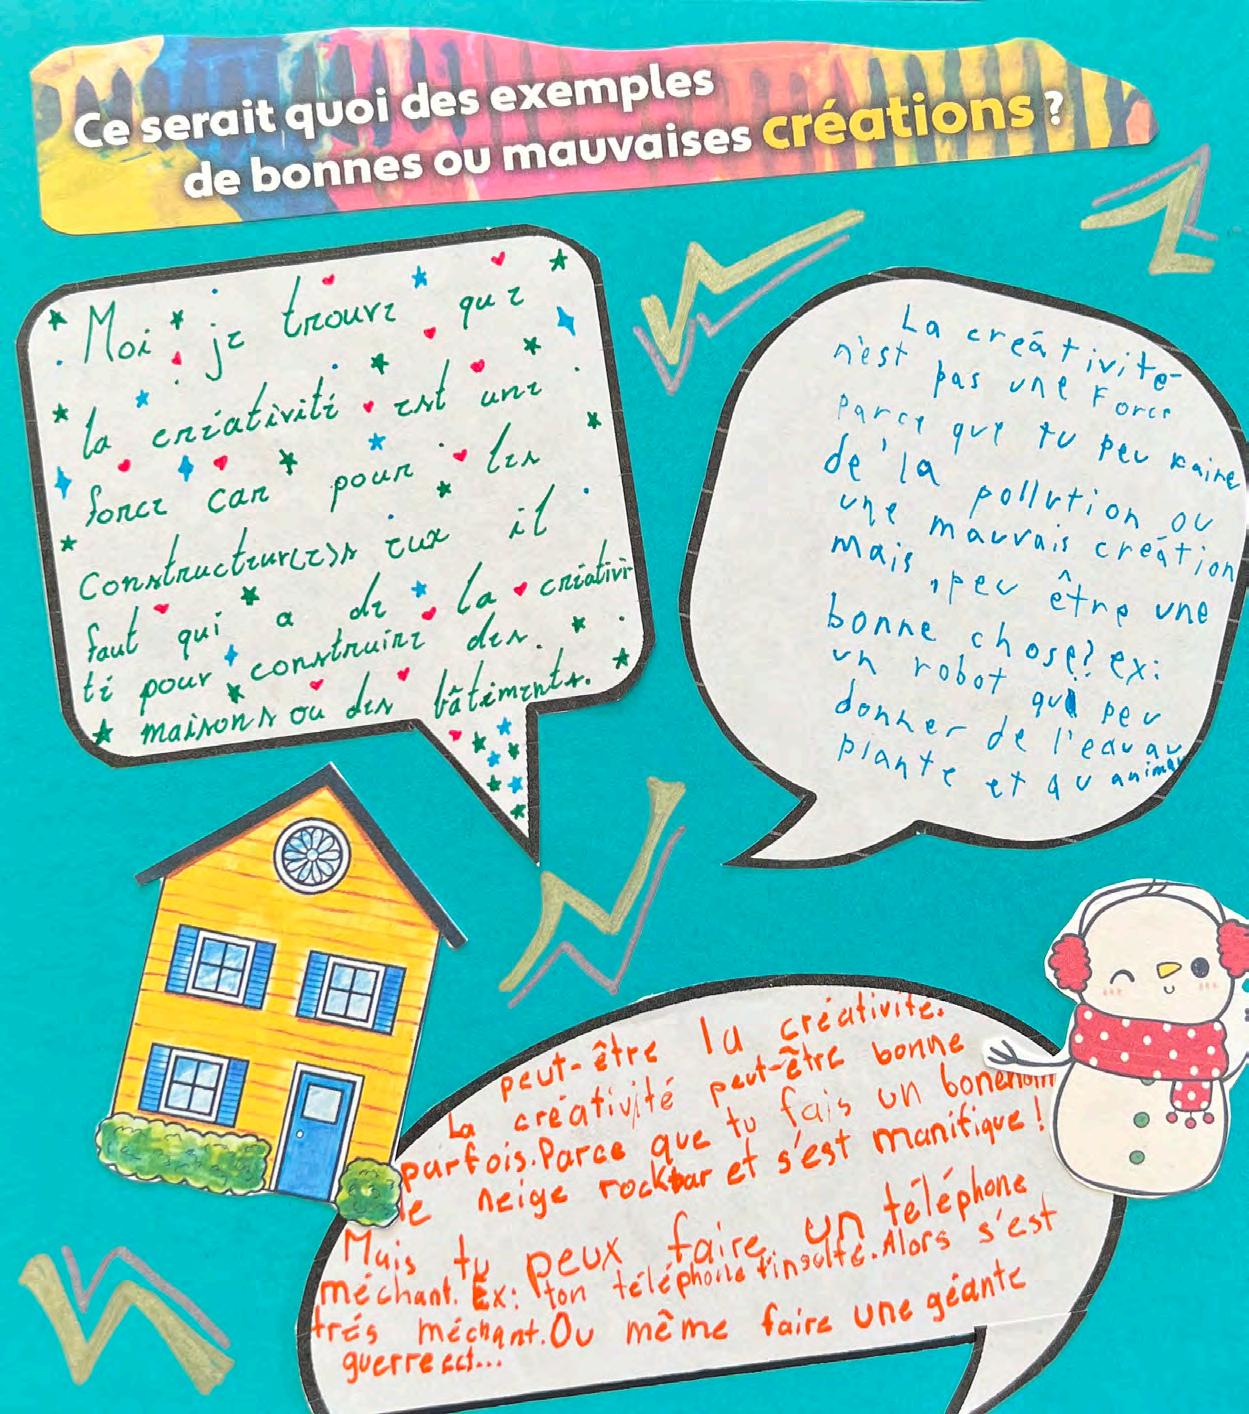 Ce serait quoi des exemples
de bonnes ou mauvaises créations ?
Moi je trouve que
la créativité est une
force car pour les
constructeur(e)s eux il
faut qui a de la créativi
té pour construire des
maisons ou des bâtiments.
La créativité
n'est pas une Force
parce que tu peu faire
de la pollution ou
une mauvais création
mais, peu être une
bonne chose? ex:
un robot qui peu
donner de l'eau au
plante et au animau
peut-être la créativité.
La créativité peut-être bonne
parfois. Parce que tu fais un bonehom
de neige rockstar et s'est manifique!
Mais tu peux faire un téléphone
méchant. Ex: ton téléphone t'insulte. Alors s'est
trés méchant. Ou même faire une géante
guerre ect...